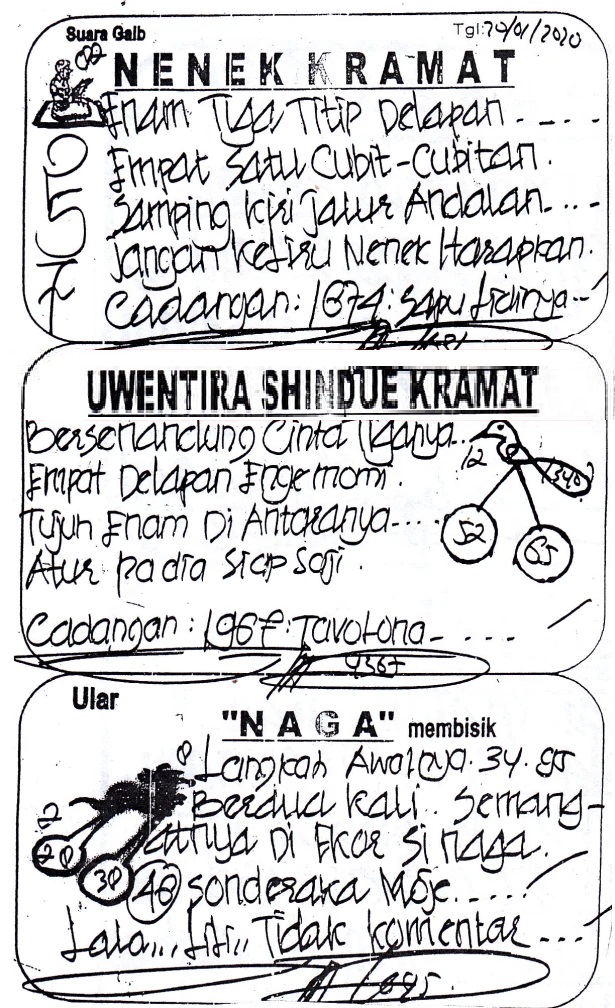 Suara Gaib
Tgl: 20/01/2020
NENEK KRAMAT
Enam Tiga Titip Delapan . - - - -
Empat Satu Cubit-Cubitan .
Samping Kiri Jalur Andalan - . . -
Jangan Keliru Nenek Harapkan .
Cadangan : 1674 : Sapu Lidinya - -
UWENTIRA SHINDUE KRAMAT
Bersenandung Cinta Tiganya . .
12
Empat Delapan Engemomi .
Tujuh Enam Di Antaranya - - - . .
52
65
Atur padia Siap Saji .
Cadangan : 1967 : Tavolona - . . . .
9367
Ular
"NAGA" membisik
Langkah Awalnya . 34 .
Berdua kali . . Semang-
atnya Di Ekor Si naga .
20
30
46 sonderaka Moje . . . . .
Lala . . . Lili . . Tidak komentar - - -